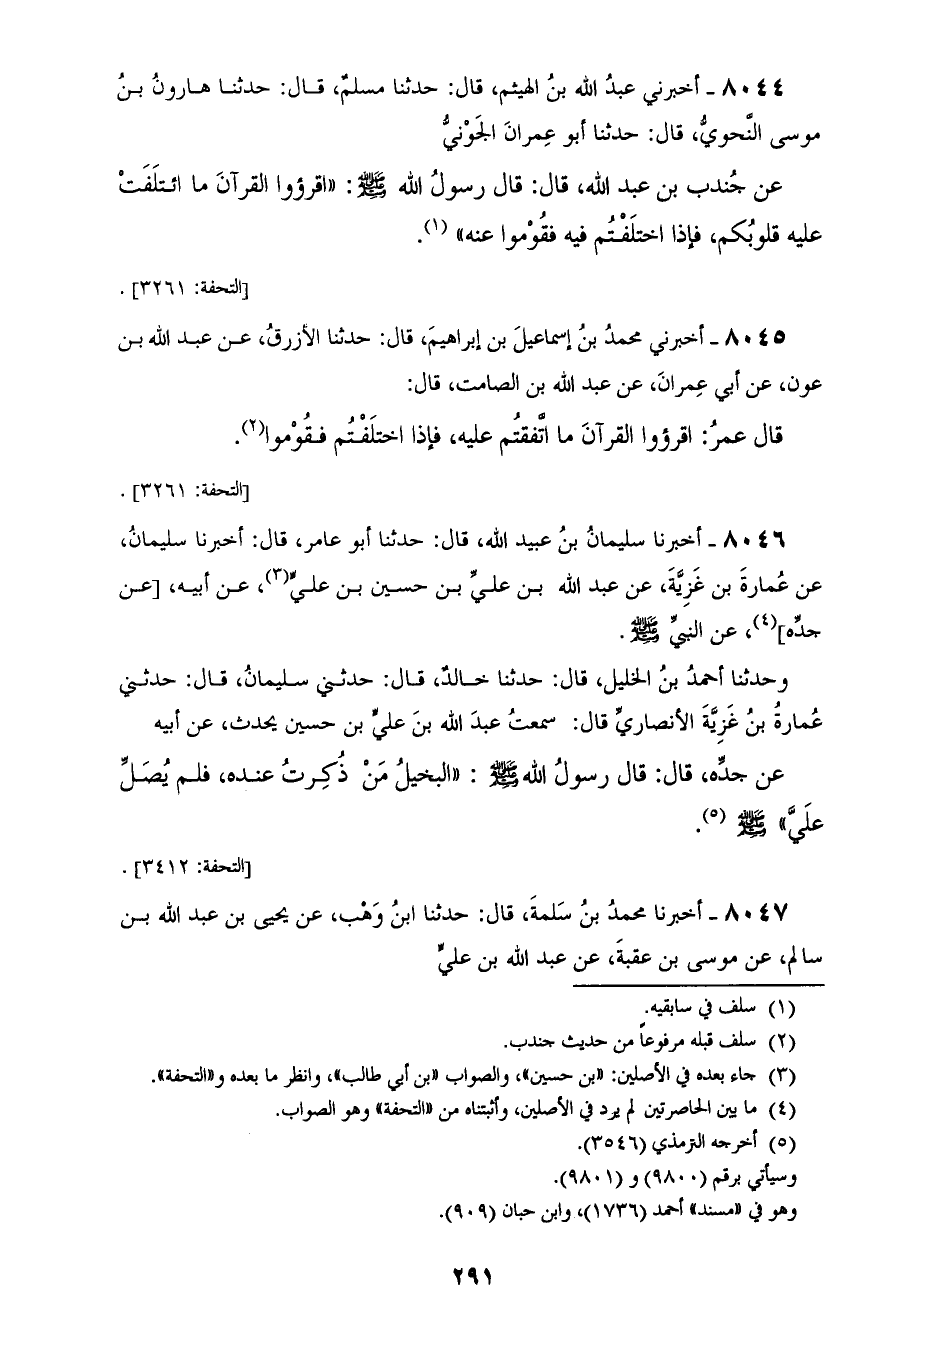 ٨٠٤٤ ـ أخبرني عبدُ الله بنُ الهيثم، قال: حدثنا مسلمٌ، قال: حدثنا هارونُ بنُ
موسى النَّحويُّ، قال: حدثنا أبو عِمرانَ الجَوْنيُّ
عن جُندب بن عبد الله، قال: قال رسولُ الله ﷺ: «اقرؤوا القرآنَ ما ائتلَفَتْ
عليه قلوبُكم، فإذا اختلَفْتُم فيه فقُوْموا عنه» (١).
[التحفة: ٣٢٦١] .
٨٠٤٥ ـ أخبرني محمدُ بنُ إسماعيلَ بن إبراهيمَ، قال: حدثنا الأزرقُ، عن عبد الله بن
عون، عن أبي عِمرانَ، عن عبد الله بن الصامت، قال:
قال عمرُ: اقرؤوا القرآنَ ما اتَّفقتُم عليه، فإذا اختلَفْتُم فقُوْموا(٢).
[التحفة: ٣٢٦١] .
٨٠٤٦ ـ أخبرنا سليمانُ بنُ عبيد الله، قال: حدثنا أبو عامر، قال: أخبرنا سليمانُ،
عن عُمارةَ بن غَزِيَّةَ، عن عبد الله بن عليِّ بن حسين بن عليٍّ(٣)، عن أبيه، [عن
جدِّه](٤)، عن النبيِّ ﷺ.
وحدثنا أحمدُ بنُ الخليل، قال: حدثنا خالدٌ، قال: حدثني سليمانُ، قال: حدثني
عُمارةُ بنُ غَزِيَّةَ الأنصاريِّ قال: سمعتُ عبدَ الله بنَ عليِّ بن حسين يحدث، عن أبيه
عن جدِّه، قال: قال رسولُ الله ﷺ : «البخيلُ مَنْ ذُكِرتُ عنده، فلم يُصَلِّ
علَيَّ» ﷺ (٥).
[التحفة: ٣٤١٢] .
٨٠٤٧ ـ أخبرنا محمدُ بنُ سَلمةَ، قال: حدثنا ابنُ وَهْب، عن يحيى بن عبد الله بن
سالم، عن موسى بن عقبةَ، عن عبد الله بن عليٍّ
(١) سلف في سابقيه.
(٢) سلف قبله مرفوعاً من حديث جندب.
(٣) جاء بعده في الأصلين: «بن حسين»، والصواب «بن أبي طالب»، وانظر ما بعده و«التحفة».
(٤) ما بين الحاصرتين لم يرد في الأصلين، وأثبتناه من «التحفة» وهو الصواب.
(٥) أخرجه الترمذي (٣٥٤٦).
وسيأتي برقم (٩٨٠٠) و (٩٨٠١).
وهو في «مسند» أحمد (١٧٣٦)، وابن حبان (٩٠٩).
٢٩١